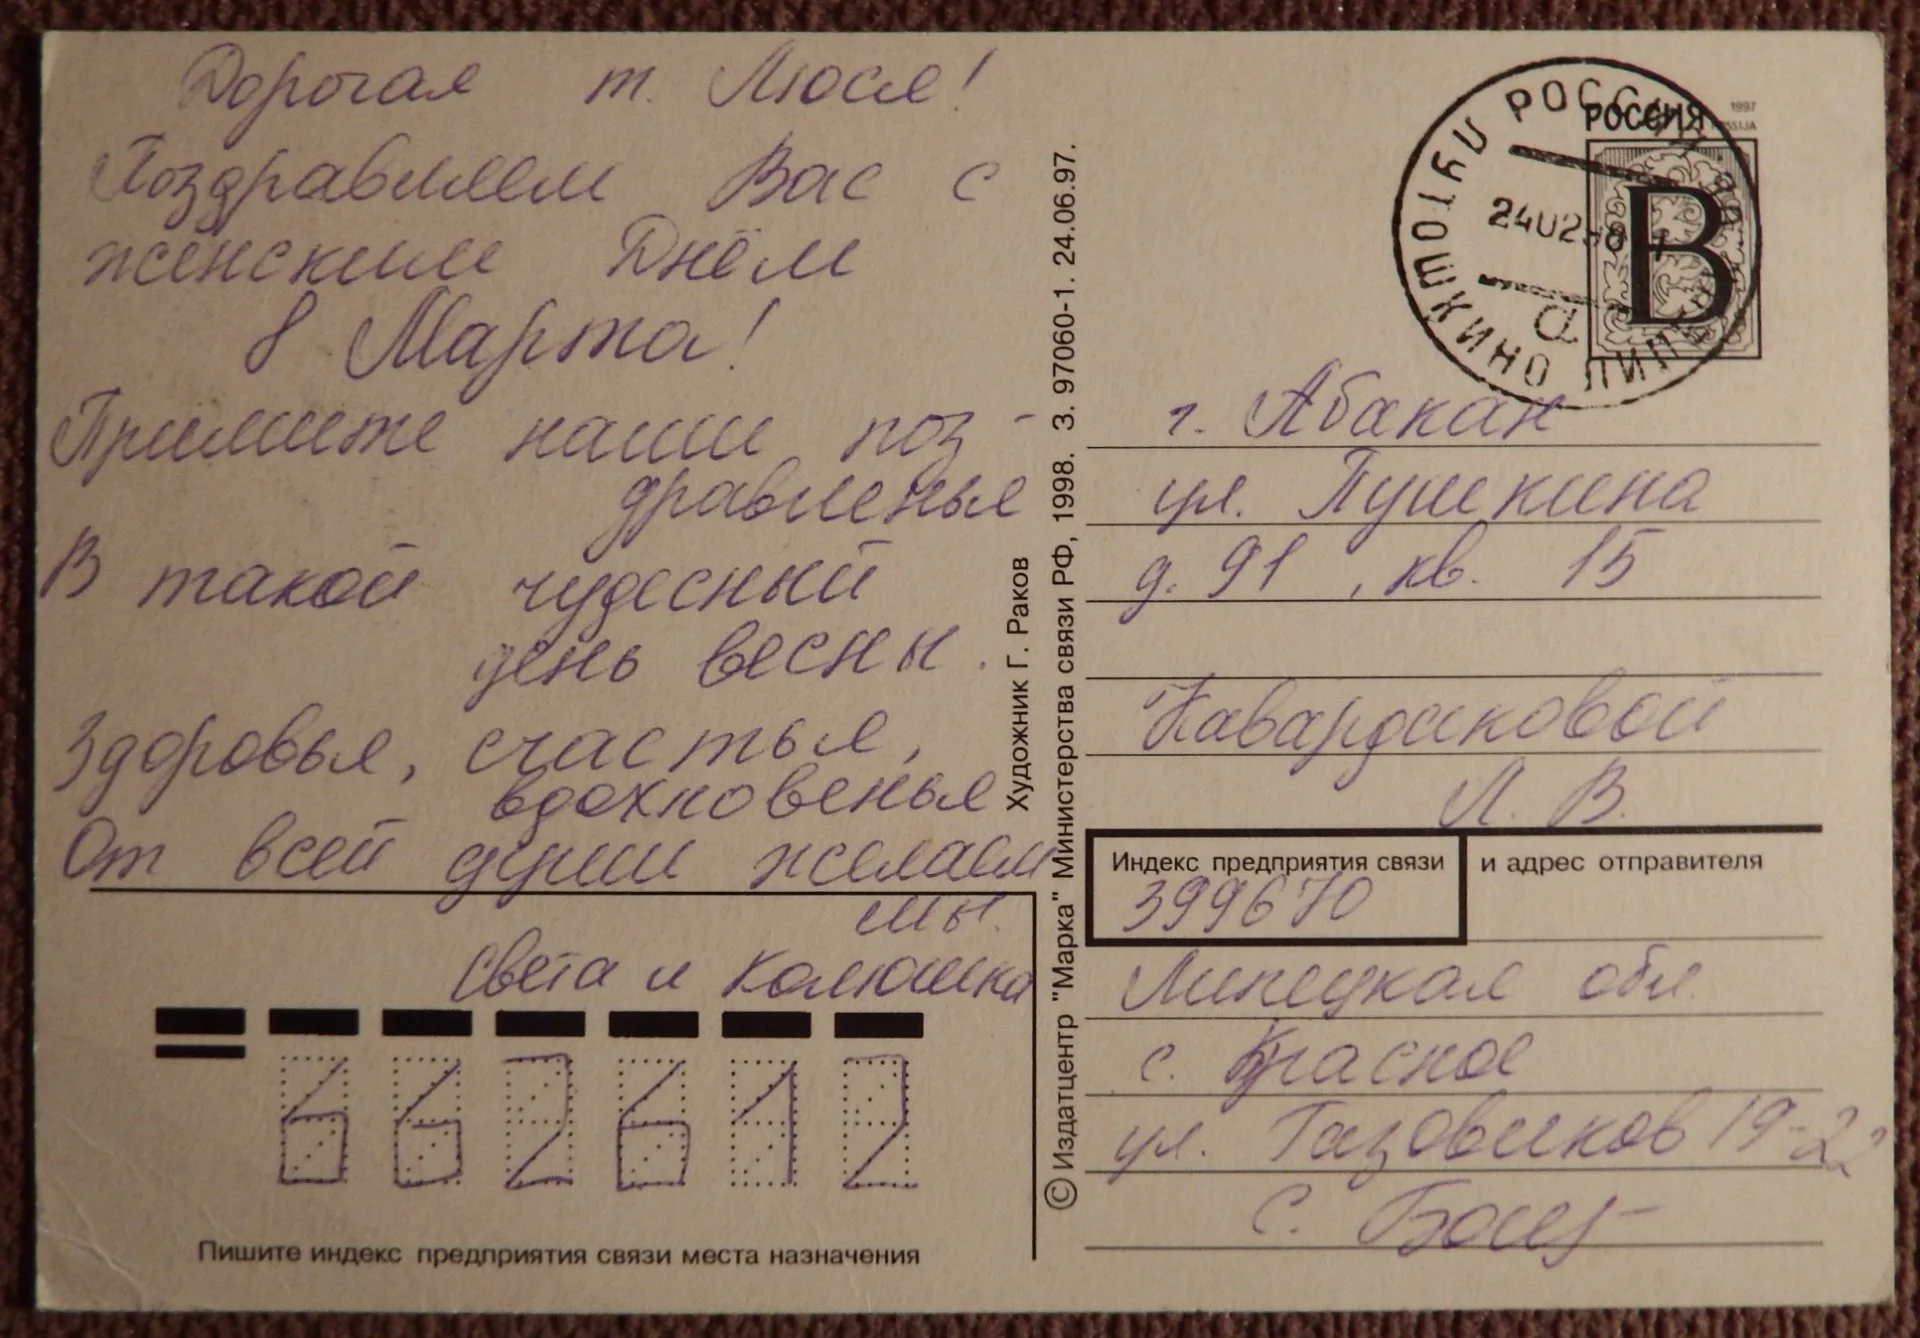 Дорогая т. Люся!
Поздравляем Вас с
женским Днём
8 Марта!
Примите наши поз-
дравленья
В такой чудесный
день весны.
Здоровья, счастья,
вдохновенья
От всей души желаем
мы.
Света и Колюшка
662612
Пишите индекс предприятия связи места назначения
Художник Г. Раков
© Издатцентр "Марка" Министерства связи РФ, 1998. З. 97060-1. 24.06.97.
РОССИЯ
1997
ROSSIJA
B
РОССИЯ
2402
г. Абакан
ул. Пушкина
д. 91, кв. 15
Кавардиковой
Л. В.
Индекс предприятия связи и адрес отправителя
399670
Липецкая обл.
с. Красное
ул. Газовиков 19-22
С.